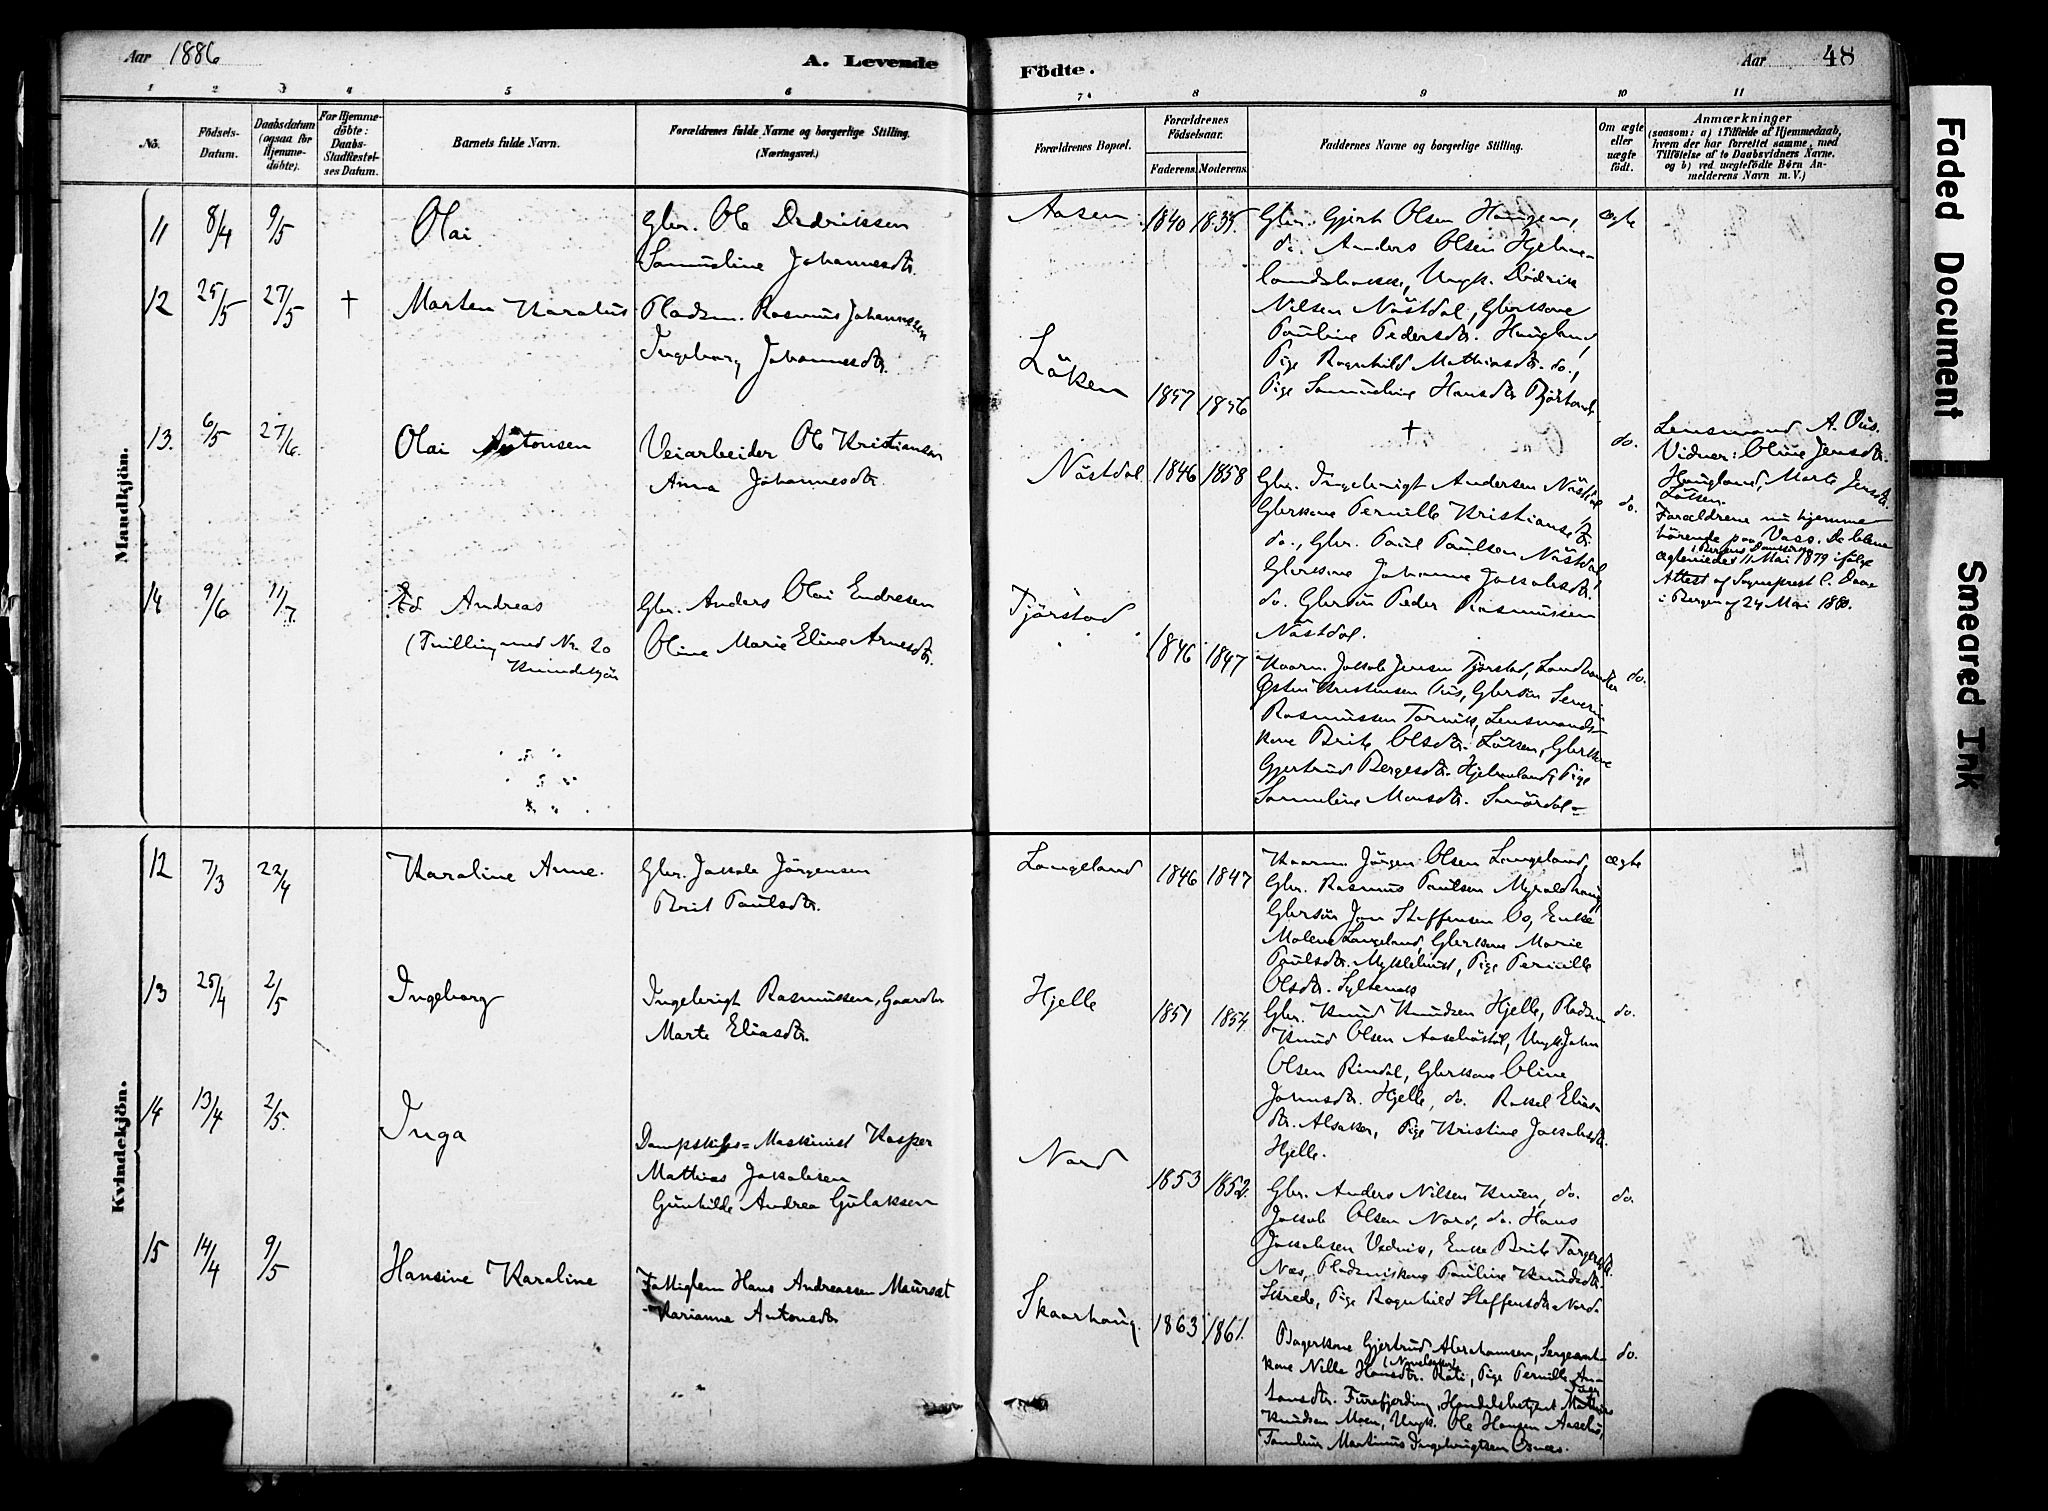 Aar 1886
A. Levende
Födte.
Aar 48
1 2 3 4 5 6 7 8 9 10 11
No.
Födsels-
Datum.
Daabsdatum
(ogsaa for
Hjemme-
döbte).
For Hjemme-
döbte:
Daabs-
Stadfæstel-
ses Datum.
Barnets fulde Navn.
Forældrenes fulde Navne og borgerlige Stilling.
(Næringsvei.)
Forældrenes Bopæl.
Forældrenes
Födselsaar.
Faderens. Moderens.
Faddernes Navne og borgerlige Stilling.
Om ægte
eller
uægte
födt.
Anmærkninger
(saasom: a) i Tilfælde af Hjemmedaab,
hvem der har forrettet samme, med
Tilföielse af to Daabsvidners Navne,
og b) ved uægtefödte Börn An-
melderens Navn m. V.)
Mandkjön.
11 8/4 9/5 Olai
Gbr. Ole Dedriksen
Samueline Johannesdtr.
Aasen 1840 1835.
Gbr. Gjert Olsen Haugen,
do. Anders Olsen Hjelme-
landsbakke, Ungk. Didrik
Nilsen Nästdal, Gbrkone
Pauline Pedersdtr. Haugland,
Pige Ragnhild Mathiasdtr. do.,
Pige Samueline Hansdtr.
ægte
12 25/5 27/5 † Marten Karalus
Pladsm. Rasmus Johannessen
Ingeborg Johannesdtr.
Löken 1857 1856
†
do.
Lensmand A. Ous.
Vidner: Oline Jensdtr.
Haugland, Marte Jensdtr.
Löken.
13. 6/5 27/6. Olai Antonsen
Veiarbeider Ole Kristiansen
Anna Johannesdtr.
Nästdal 1846 1858
Gbr. Ingebrigt Andersen Nästdal
Gbrkone Pernille Kristiansdtr.
do., Gbr. Paul Paulsen Nästdal,
Gbrkone Johanne Jakobsdtr.
do. Gbrsön Peder Rasmussen
Nästdal.
do.
Forældrene nu hjemme-
hörende paa Voss. De bleve
i Bergens Domkirke
ægteviede 11 Mai 1879 ifölge
Attest af Sogneprest C. Daae
i Bergen af 24 Mai 1880.
14 9/6 11/7. Ed Andreas
(Tvilling med Nr. 20
Kvindekjön
Gbr. Anders Olai Endresen
Oline Marie Eline Arnesdtr.
Tjörstad 1846 1847
Kaarm. Jakob Jensen Tjörstad, Landhandler
Østen Kristensen Ous, Gbrsön Severin
Rasmussen Tarvik, Lensmands-
kone Brite Olsdtr. Löken, Gbrkone
Gjertrud Bergesdtr. Hjelmeland, Pige
Samueline Monsdtr. Smördal.
do.
Kvindekjön.
12 7/3 22/4 Karoline Anne.
Gbr. Jakob Jörgensen
Brit Paulsdtr.
Langeland 1846 1847
Kaarm. Jörgen Olsen Langeland,
Gbr. Rasmus Paulsen Myraldhaug
Gbrsön Jon Steffensen Os, Enke
Malene Langeland, Gbrkone Marie
Paulsdtr. Myklebust, Pige Pernille
Olsdtr. Syltenæs
ægte
13 25/4 2/5 Ingeborg
Ingebrigt Rasmussen, Gaardbr
Marte Eliasdtr.
Hjelle 1851 1854.
Gbr. Knud Knudsen Hjelle, Pladsm
Knud Olsen Aaseböstöl, Ungk. John
Olsen Rindal, Gbrkone Oline
Jonsdtr. Hjelle, do. Rakel Elias-
dtr. Alsaker, Pige Kristine Jakobsdtr.
Hjelle.
do.
14 13/4 2/5. Inga
Dampskibs-Maskinist Kasper
Mathias Jakobsen
Gunhilde Andrea Gulaksen
Nord 1853 1852.
Gbr. Anders Nilsen Kruen, do.
Jakob Olsen Nord, do. Hans
Jakobsen Vedvik, Enke Brite Torgersdtr.
Næs, Pladsmskone Pauline Knudsdtr.
Strede, Pige Ragnhild Steffensdtr Nord.
do.
15 14/4 9/5 Hansine Karoline
Fattiglem Hans Andreassen Maurset
Karianne Antonsdtr
Skaarhaug 1863 1861.
Bagerkone Gjertrud Abrahamsen, Sergeant-
kone Nille Hansdtr. Rati, Pige Pernille An-
tonsdtr. Furefjorden, Handelsbetjent Mathias
Knudsen Moen, Ungk. Ole Hansen Aasebö,
Tambur Martinus Ingebrigtsen Osnæs.
do.
Faded Document
Smeared Ink